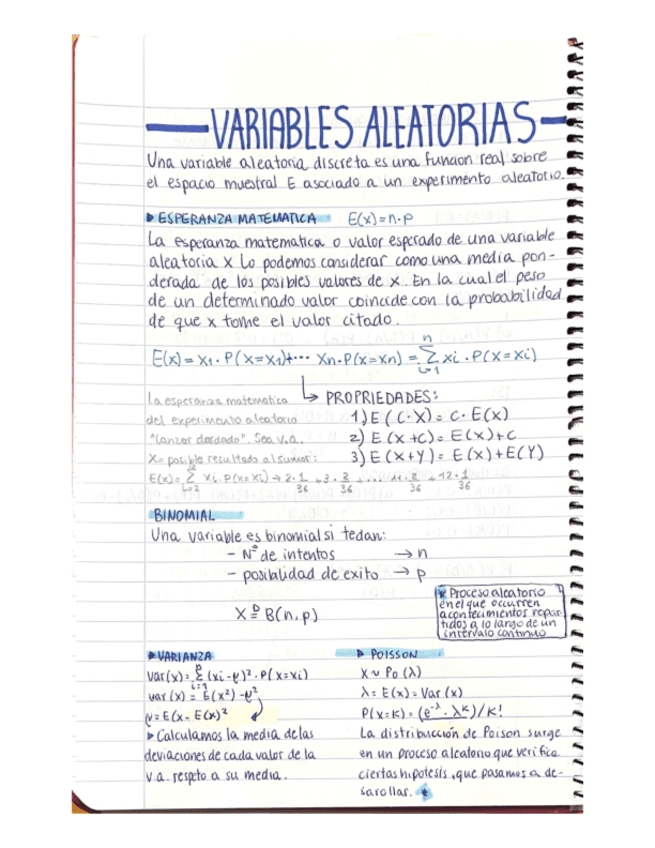 VARIABLES ALEATORIAS
Una variable aleatoria discreta es una funcion real sobre
el espacio muestral E asociado a un experimento aleatorio.
▶ ESPERANZA MATEMATICA E(x)=n·p
La esperanza matematica o valor esperado de una variable
aleatoria x lo podemos considerar como una media pon-
derada de los posibles valores de x. En la cual el peso
de un determinado valor coincide con la probabilidad
de que x tome el valor citado.
E(x) = x1 · P(x=x1)+... xn·P(x=xn) = Σ xi · P(x=xi)
n
i=1
↳ PROPIEDADES:
1) E(C·X) = C·E(x)
2) E(x+c) = E(x)+c
3) E(x+y) = E(x)+E(y)
la esperanza matematica
del experimento aleatorio
"lanzar dos dado". Sea v.a.
X= posible resultado al sumar:
E(x) = Σ xi·P(x=xi) → 2·1/36 +3·2/36 + ... 11·2/36 +12·1/36
12
i=2
BINOMIAL
Una variable es binomial si te dan:
- Nº de intentos → n
- posibilidad de exito → p
X ≡ B(n,p)
D
* Proceso aleatorio
en el que occurren
acontecimientos repar-
tidos a lo largo de un
intervalo continuo
▶ VARIANZA
Var(x)= Σ (xi-μ)²·P(x=xi)
i=1
var(x) = E(x²)-μ²
μ=E(x- E(x)²
▶ Calculamos la media de las
deviaciones de cada valor de la
v.a. respeto a su media.
▶ POISSON
X ~ Po(λ)
λ = E(x) = Var(x)
P(x=k) = (e^-λ · λ^k)/k!
La distribucción de Poison surge
en un proceso aleatorio que verifica
ciertas hipotesis, que pasamos a de-
sarollar. *